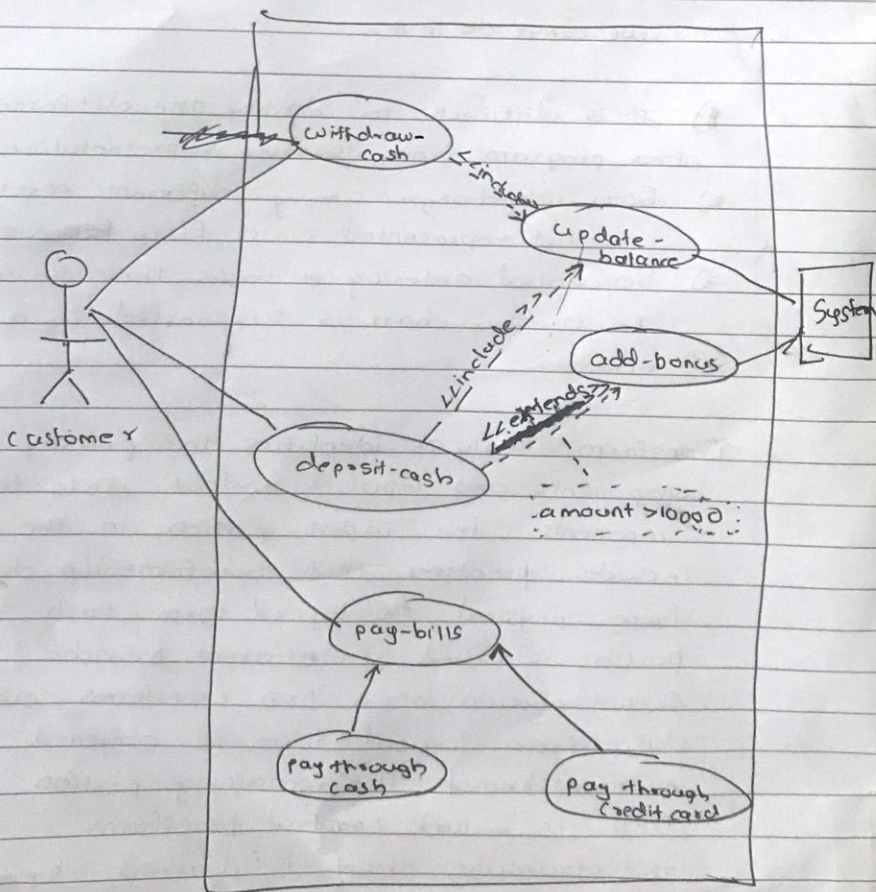 withdraw-
cash
<<include
update-
balance
System
<<include>>
add-bonus
<<extends>>
customer
deposit-cash
amount >10000
pay-bills
pay through
cash
pay through
credit card